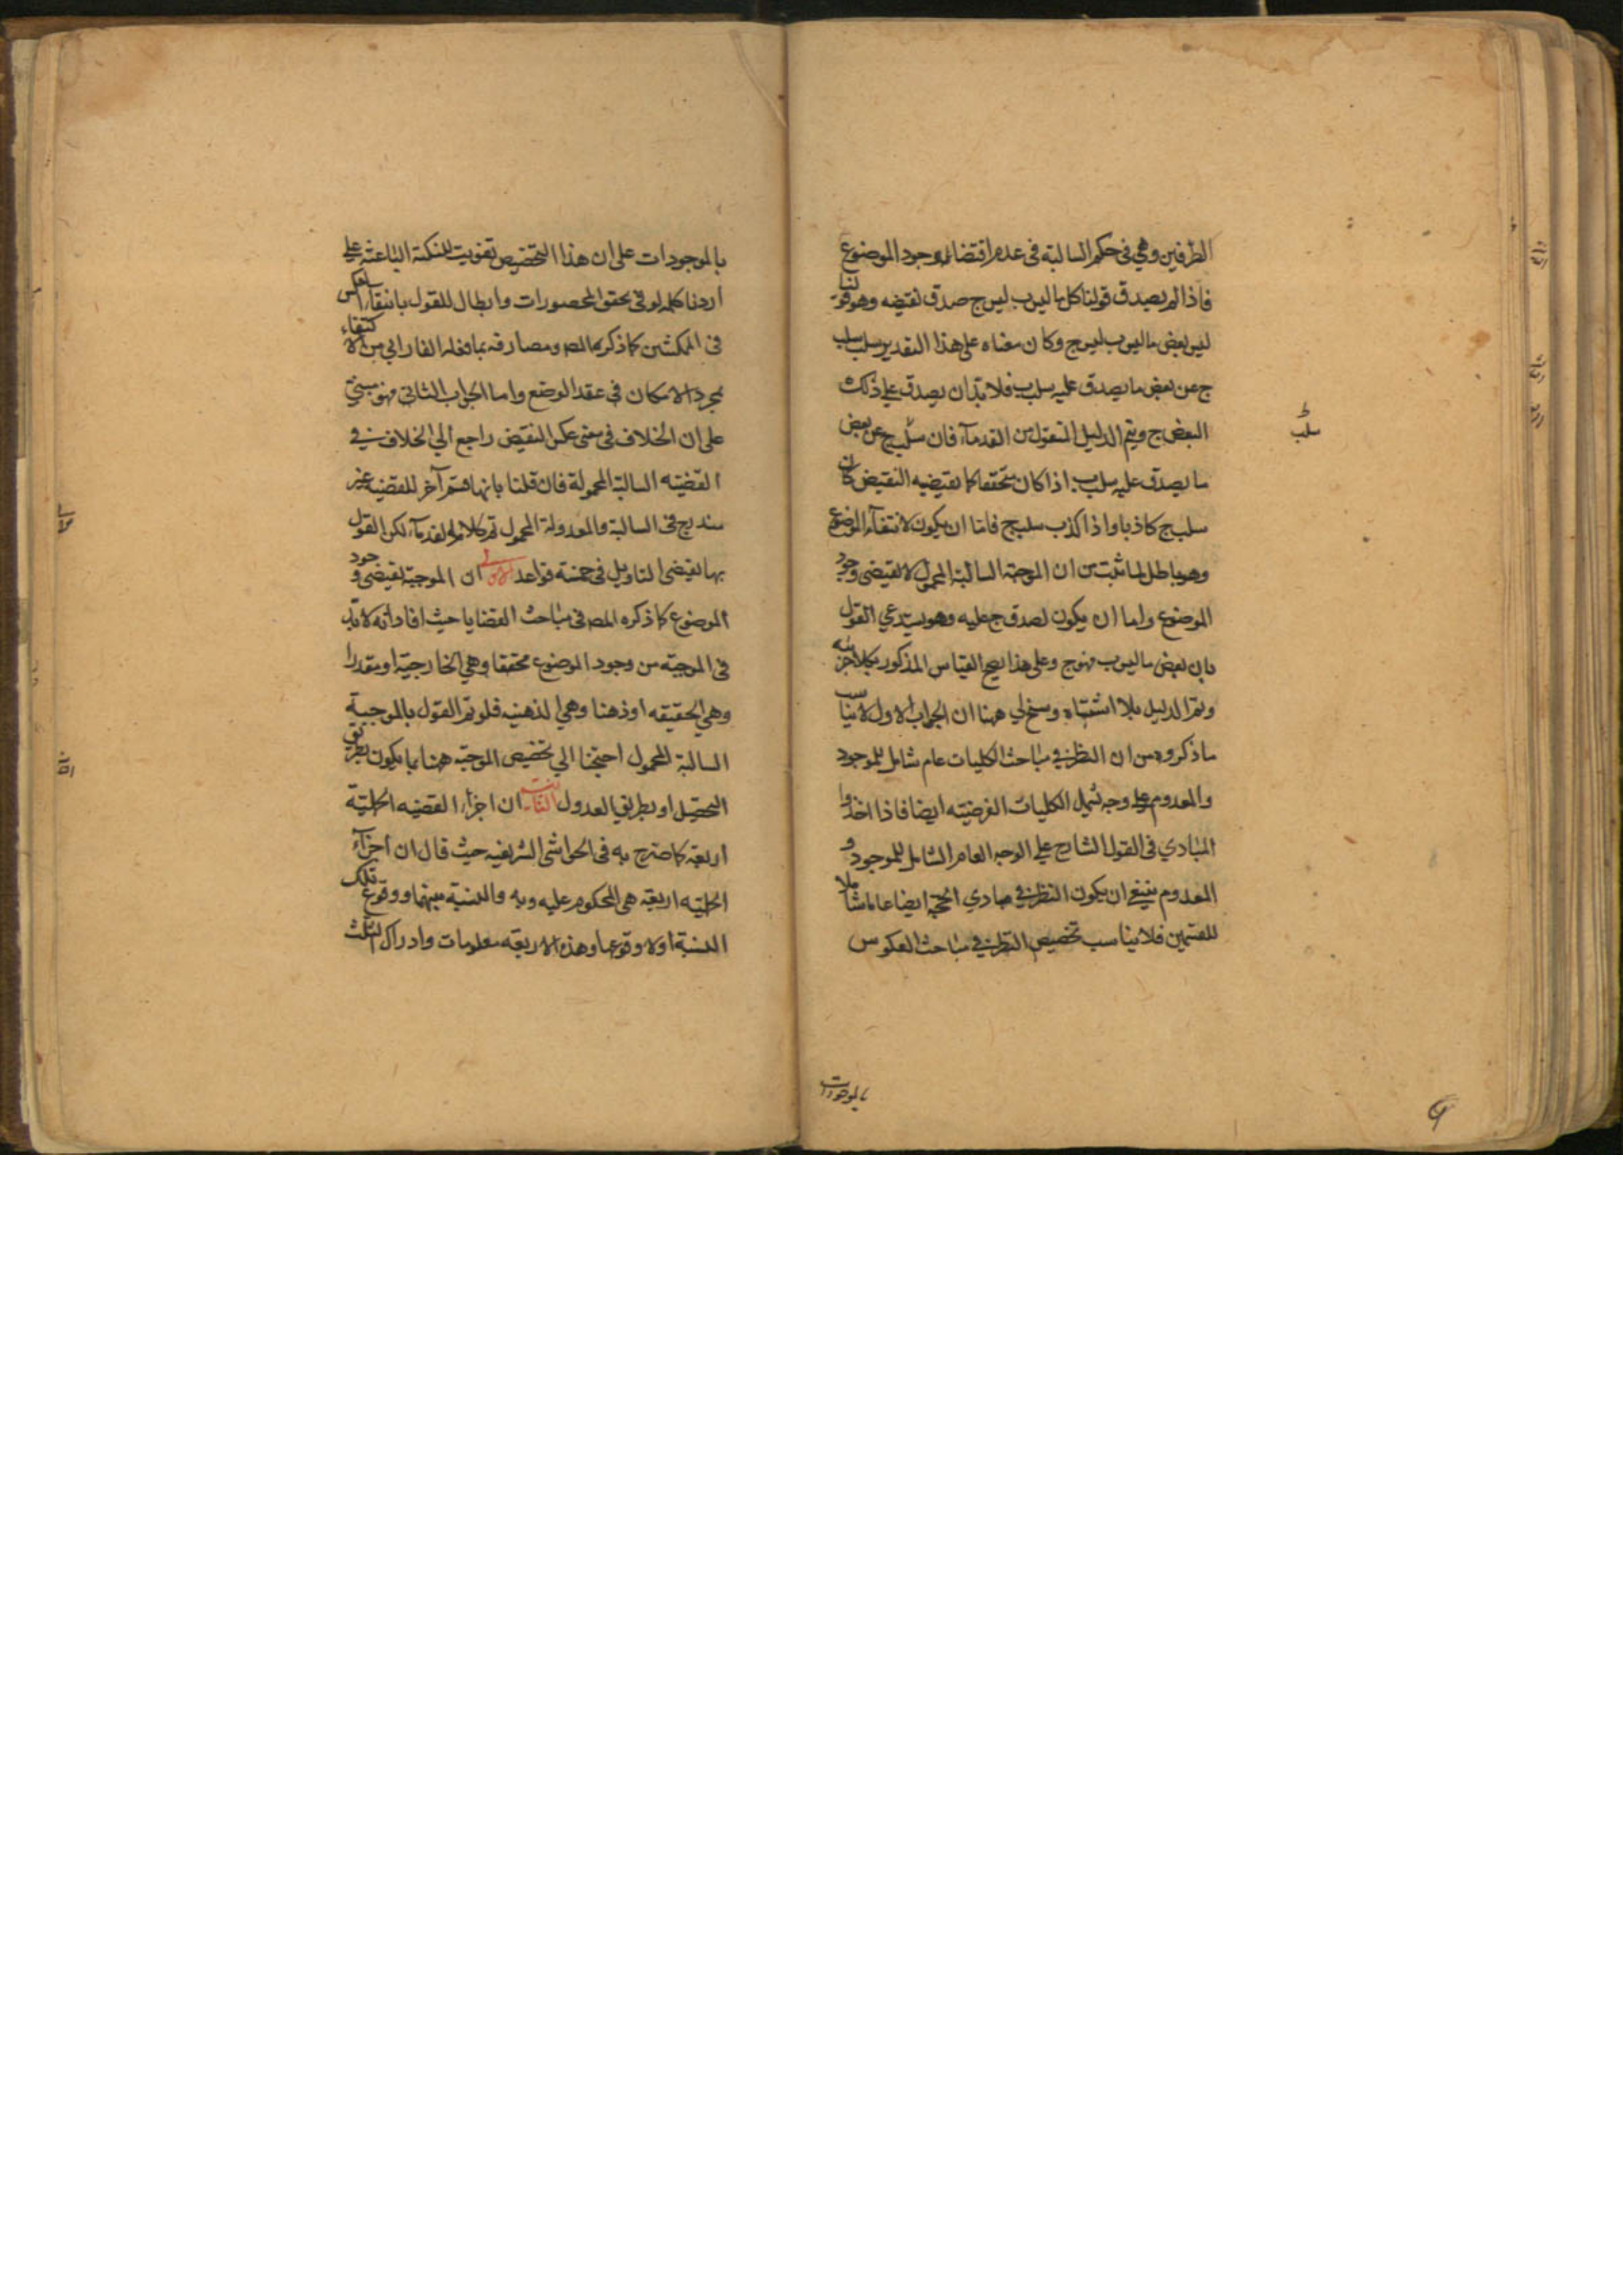 الطرفين وهي في حكم السالبة في عدم اقتضائه وجود الموضوع
فاذا لم يصدق قولنا كل ما ليس ب ليس ج صدق نقيضه وهو قولنا
ليس بعض ما ليس ب ليس ج وكان معناه على هذا التقدير سلب سلب
ج عن بعض ما يصدق عليه سلب ب فلا بد ان يصدق علي ذلك
البعض ج ويتم الدليل المنقول من القدماء فان سلب ج عن بعض
سلب
ما يصدق عليه سلب ب اذا كان متحققا كما يقتضيه النقيض كان
سلب ج كاذبا واذا كذب سلب ج فاما ان يكون لانتفاء الموضوع
وهو باطل لما ثبت من ان الموجبة السالبة المحمول لا يقتضي وجود
الموضوع واما ان يكون لصدق ج عليه وهو يستدعي القول
بان بعض ما ليس ب فهو ج وعلى هذا يصح القياس المذكور بكلا جزئيه
ويتم الدليل بلا اشتباه وسنح لي ههنا ان الجواب الاول لا يناسب
ما ذكروه من ان النظر في مباحث الكليات عام شامل للموجود
والمعدوم على وجه يشمل الكليات الفرضيته ايضا فاذا اخذوا
المبادي في القول الشارح علي الوجه العام الشامل للموجود و
المعدوم ينبغي ان يكون النظر في مبادي الحجة ايضا عاما شاملا
للقسمين فلا يناسب تخصيص النظر في مباحث العكوس
بالموجودات
بالموجودات على ان هذا التخصيص تفويت للنكتة الباعثة علي
اردنا كلمه لو في تحقق المحصورات وابطال للقول بانتفاء العكس
في الممكنتين كما ذكره المص ومصارفه بما فعله الفارابي من الاكتفاء
بمجرد الامكان في عقد الوضع واما الجواب الثاني فهو مبني
على ان الخلاف في معنى عكس النقيض راجع الي الخلاف في
القضيته السالبة المحمولة فان قلنا بانها قسم آخر للقضيه غير
مندرج في السالبة والمعدولة المحمول تم كلام القدماء لكن القول
بها يقتضي التاويل في خمسة قواعد الاولى ان الموجبة يقتضي وجود
الموضوع كما ذكره المص في مباحث القضايا حيث افاد انه لا بد
في الموجبة من وجود الموضوع محققا وهي الخارجية او مقدرا
وهي الحقيقه او ذهنا وهي الذهنيه فلو تم القول بالموجبة
السالبة المحمول احتجنا الي تخصيص الموجبة ههنا بما يكون بطريق
التحصيل او بطريق العدول الثانية ان اجزاء القضيه الحملية
اربعة كما صرح به في الحواشي الشريفيه حيث قال ان اجزاء
الحمليه اربعة هي المحكوم عليه وبه والنسبة بينهما ووقوع تلك
النسبة او لا وقوعها وهذه الاربعه معلومات وادراك الثلث